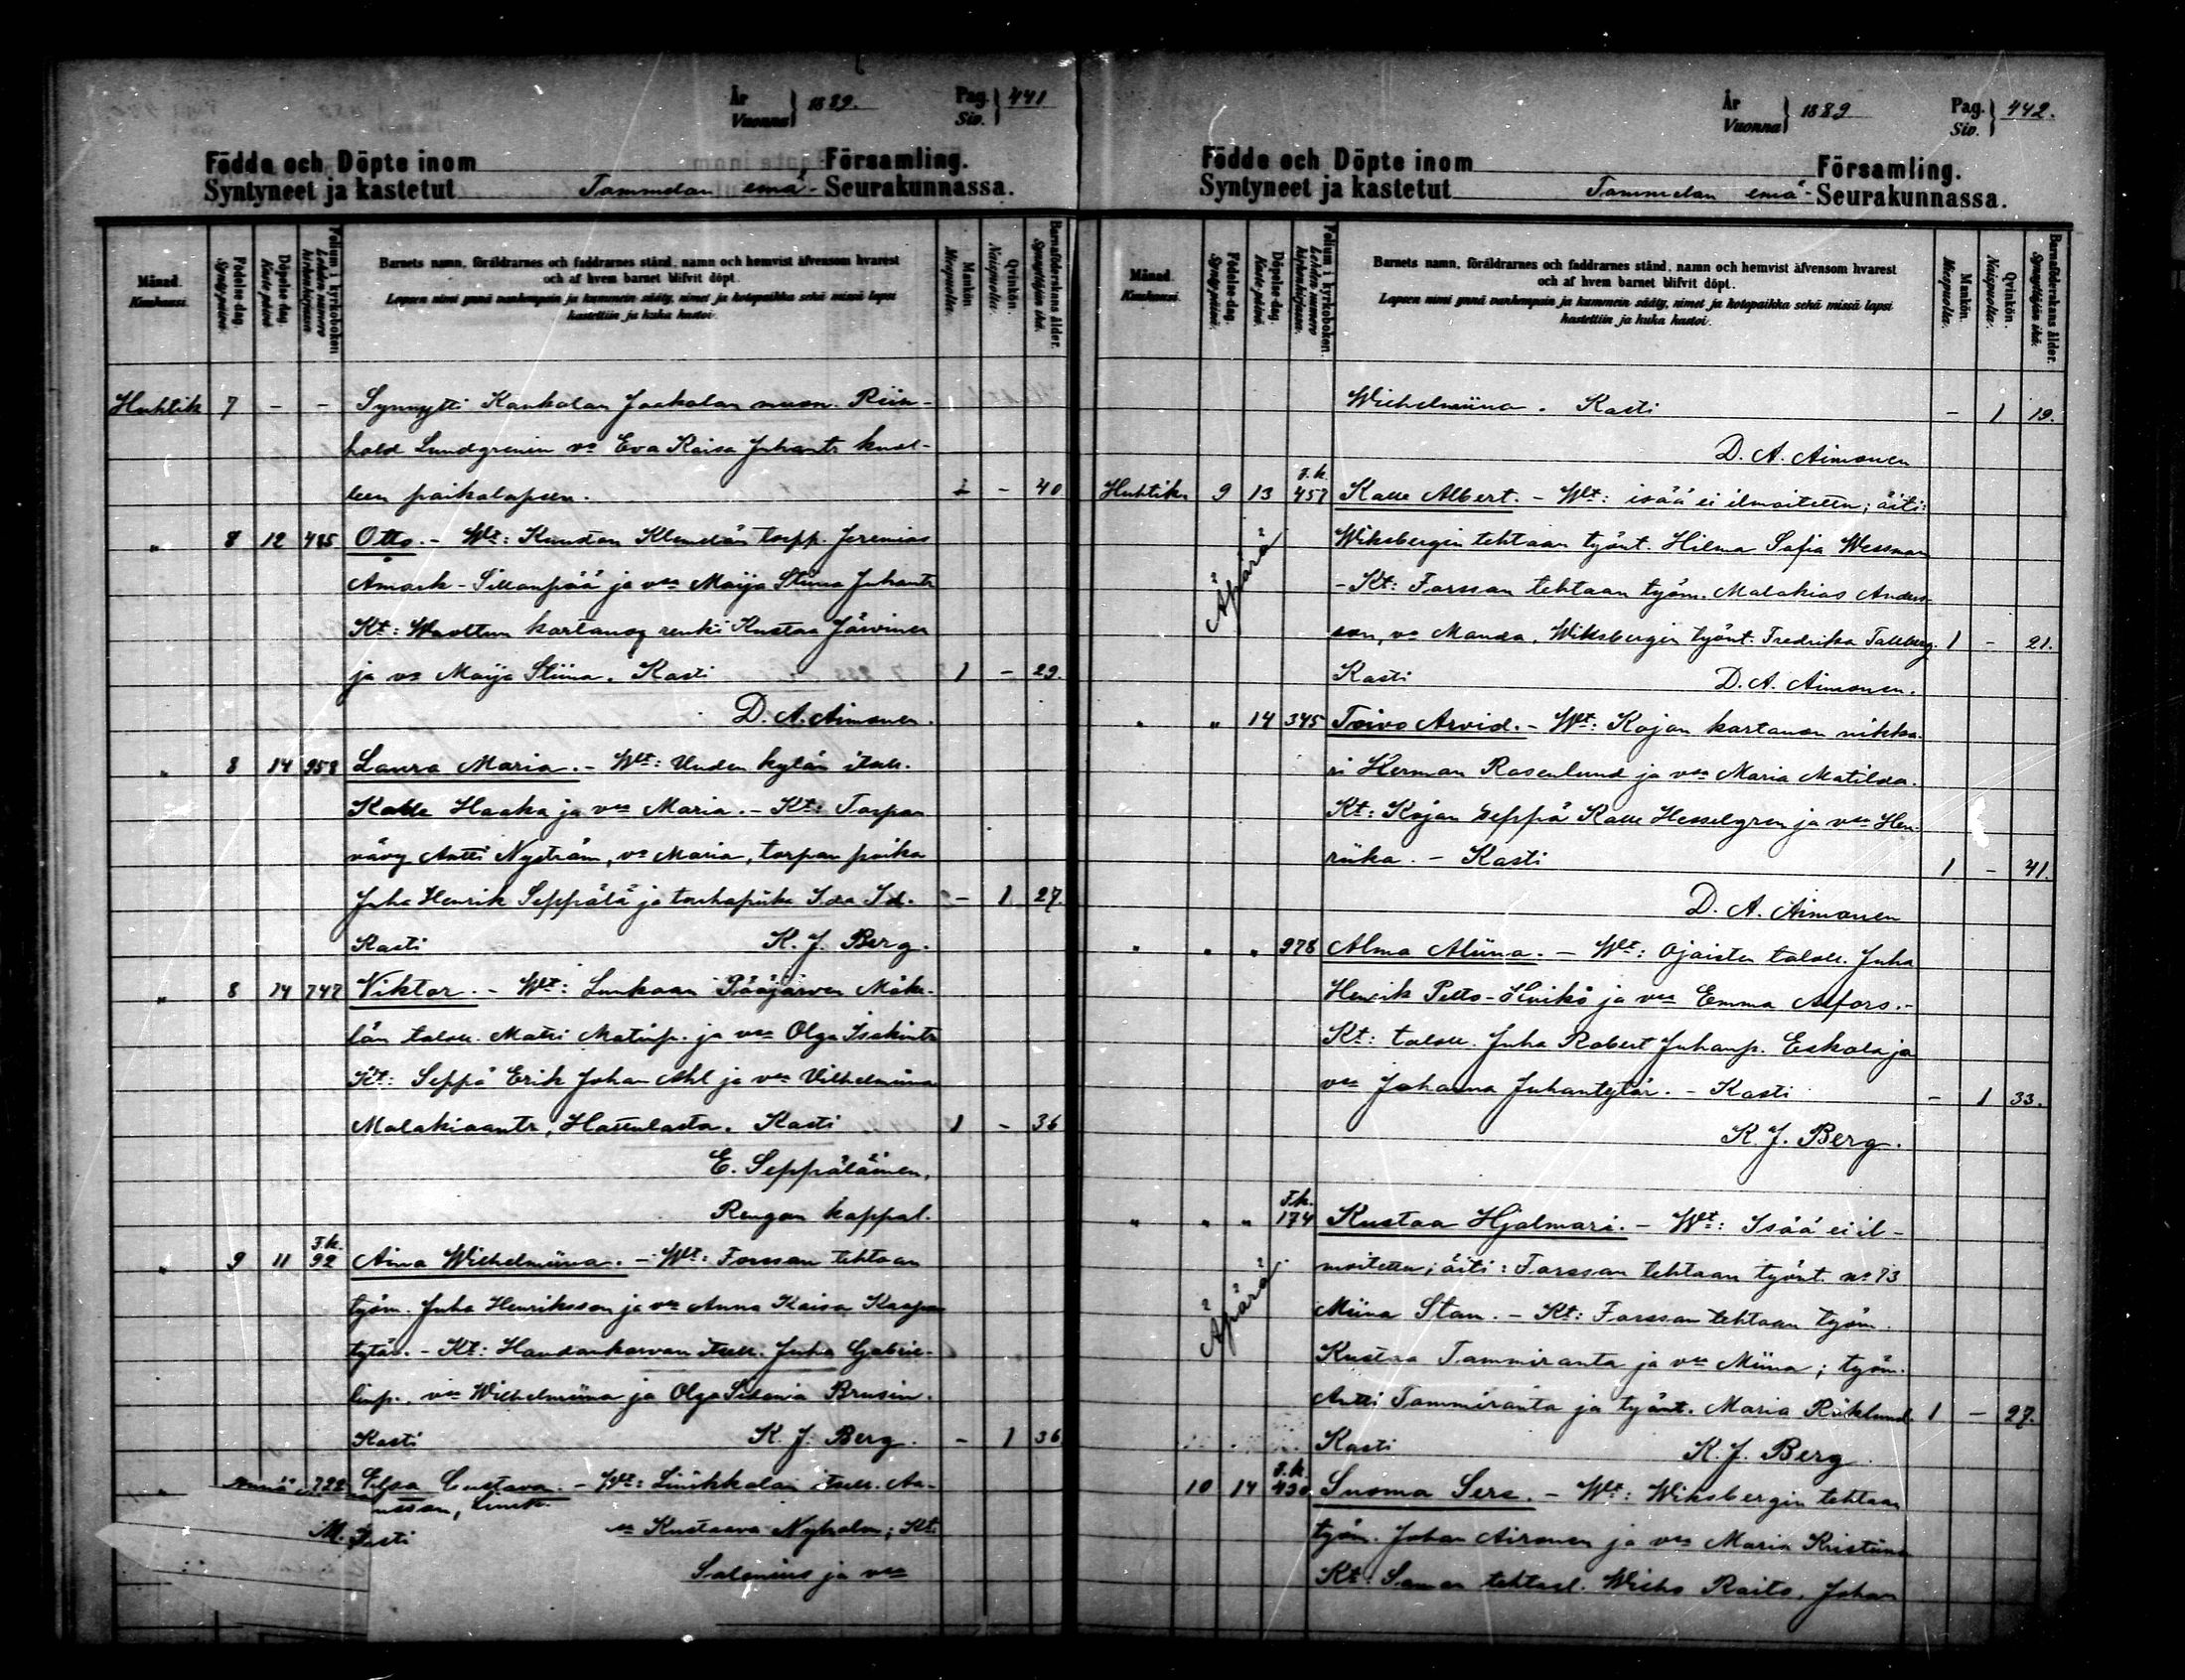 År
Vuonna } 1889.
Pag.
Siv. } 441
Födde och Döpte inom Församling.
Syntyneet ja kastetut Tammelan emä- Seurakunnassa.
Månad. Kuukausi.
Födelse-dag. Syntypäivä.
Döpelse-dag. Kaste päivä
Folium i kyrkoboken Lehden numero kirkonkirjassa
Barnets namn, föräldrarnes och faddrarnes stånd, namn och hemvist äfvensom hvarest
och af hvem barnet blifvit döpt.
Lapsen nimi ynnä vanhempain ja kummein sääty, nimet ja kotopaikka sekä missä lapsi
kastettiin ja kuka kastoi.
Mankön. Miespuolta.
Qvinkön. Naispuolta.
Barnaföderskans ålder. Synnyttäjän ikä.
Huhtik 7 - - Synnytti Kankolan Jaakolan muon. Rein-
hold Lundgrenin vo Eva Kaisa Juhantr kuol-
leen poikalapsen. 1 - 40
" 8 12 485 Otto. - Wt: Kaustan Klemelän torpp. Jeremias
Amark-Sillanpää ja vsa Maija Stiina Juhantr
Kt: kartanon renki Kustaa Järvinen
ja vo Maija Stiina. Kasti 1 - 29.
D. A. Aimonen.
" 8 14 958 Laura Maria. - Wt: Uuden kylän itsell.
Kalle Haaka ja vsa Maria. - Kt: Torpan
vävy Antti Nyström, vo Maria, torpan poika
Juha Henrik Seppälä ja tors piika Ida Id. - 1 27
Kasti K. J. Berg.
" 8 14 747 Viktor. - Wt: Lunkaan Pääjärven Mäke-
län taloll. Matti Matinp. ja vsa Olga Isakintr
Kt: Seppä Erik Johan Ahl ja vsa Vilhelmiina
Malakiaantr, Kasti 1 - 36
E. Seppäläinen,
Rengon kappal.
" 9 11 T.k. 92 Aina Wilhelmiina. - Wt: Forssan tehtaan
työm. Juha Henriksson ja vsa Anna Kaisa Kaapon
tytär. - Kt: Haudankorvan itsell. Juha Gabrie-
linp., vsa Wilhelmiina ja Olga Sidonia Brusin.
Kasti K. J. Berg. - 1 36
" 722 Gustava. - Wt: Liinikkalan itsell.
Kustaava Nyholm; Kt:
M. Kasti
Salenius ja vsa
År
Vuonna } 1889
Pag.
Siv. } 442.
Födde och Döpte inom Församling.
Syntyneet ja kastetut Tammelan emä- Seurakunnassa.
Månad. Kuukausi.
Födelse-dag. Syntypäivä.
Döpelse-dag. Kaste päivä
Folium i kyrkoboken. Lehden numero kirkonkirjassa.
Barnets namn, föräldrarnes och faddrarnes stånd, namn och hemvist äfvensom hvarest
och af hvem barnet blifvit döpt.
Lapsen nimi ynnä vanhempain ja kummein sääty, nimet ja kotopaikka sekä missä lapsi
kastettiin ja kuka kastoi.
Mankön. Miespuolta.
Qvinkön. Naispuolta.
Barnaföderskans ålder. Synnyttäjän ikä.
Wilhelmiina. Kasti - 1 19.
D. A. Aimonen
Huhtik 9 13 T.k. 457 Kalle Albert. - Wt: isää ei ilmoitettu; äiti:
Äpärä
Wiksbergin tehtaan työnt. Hilma Sofia Wessman
- Kt: Forssan tehtaan työm. Malakias Anders-
son, vo Manda, Wiksbergin työnt. Fredrika Tallberg. 1 - 21.
Kasti D. A. Aimonen.
" " 14 345 Toivo Arvid. - Wt: Kojon kartanon nikka-
ri Herman Rosenlund ja vsa Maria Matilda.
Kt: Kojon seppä Kalle Hesselgren ja vsa Hen-
riika. - Kasti 1 - 41.
D. A. Aimonen
" " " 978 Alma Aliina. - Wt: Ojaisten taloll. Juha
Henrik ja vsa Emma Alfors. -
Kt: taloll. Juha Robert Juhanp. Eskola ja
vsa Johanna Juhantytär. - Kasti - 1 33.
K. J. Berg.
" " " T.k. 174 Kustaa Hjalmari. - Wt: Isää ei il-
Äpärä
moitettu; äiti: Forssan tehtaan työnt. no 73
Miina Stam. - Kt: Forssan tehtaan työm.
Kustaa Tammiranta ja vsa Miina; työm.
Antti Tammiranta ja työnt. Maria Röklund. 1 - 27.
Kasti K. J. Berg.
10 14 T.k. 430 Suoma Sere. - Wt: Wiksbergin tehtaan
työm. Johan Aironen ja vsa Maria Kristiina
Kt: Saman tehtaal. Wieho Raito, Johan